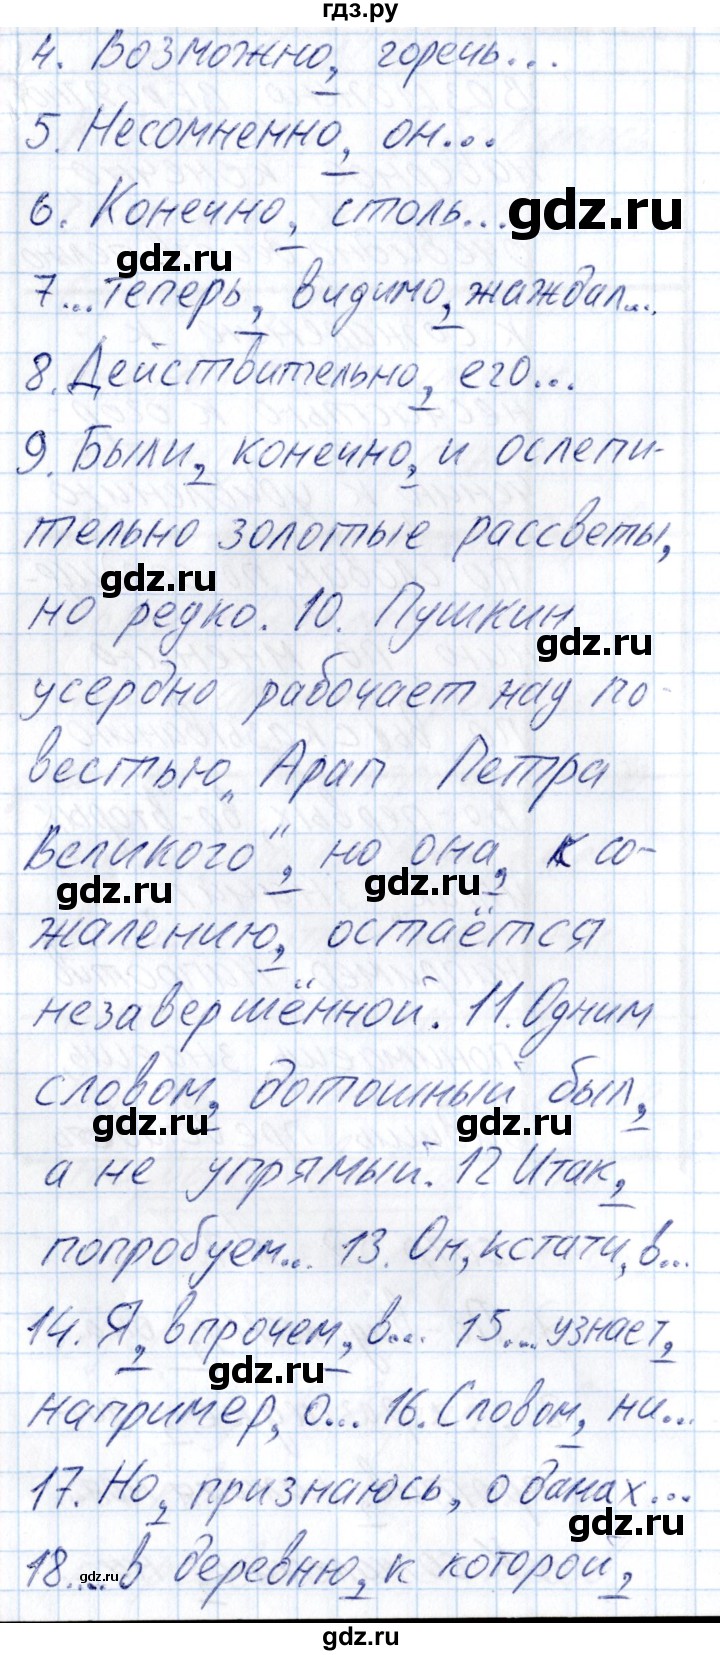 гдз.ру
4. Возможно, горечь...
5. Несомненно, он...
6. Конечно, столь...
gdz.ru
gdz.ru
7...теперь, видимо, жаждал...
8. Действительно, его...
9. Были, конечно, и ослепи-
тельно золотые рассветы,
gdz.ru
но редко. 10. Пушкин
gdz.ru
усердно рабочает над по-
вестью „Арап Петра
Великого", но она, к со-
gdz.ru gdz.ru
жалению, остаётся
незавершённой. 11. Одним
словом, дотошный был,
gdz.ru gdz.ru
а не упрямый. 12 Итак,
попробуем... 13. Он, кстати, в...
14. Я, впрочем, в... 15... узнает,
gdz.ru
например, о... 16. Словом, ни...
17. Но, признаюсь, о данах...
gdz.ru
18.... в деревню, к которой,
gdz.ru
gdz.ru